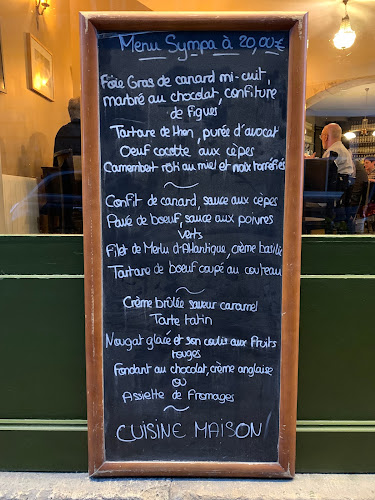 Menu Sympa à 20,00€
Foie Gras de canard mi-cuit,
marbré au chocolat, confiture
de figues
Tartare de thon, purée d'avocat
Oeuf cocotte aux cèpes
Camembert roti au miel et noix torréfiés
Confit de canard, sauce aux cèpes
Pavé de boeuf, sauce aux poivres
verts
Filet de Merlu d'Atlantique, crème basilic
Tartare de boeuf coupé au couteau
Crème brûlée saveur caramel
Tarte tatin
Nougat glacé et son coulis aux fruits
rouges
Fondant au chocolat, crème anglaise
ou
Assiette de fromages
CUISINE MAISON